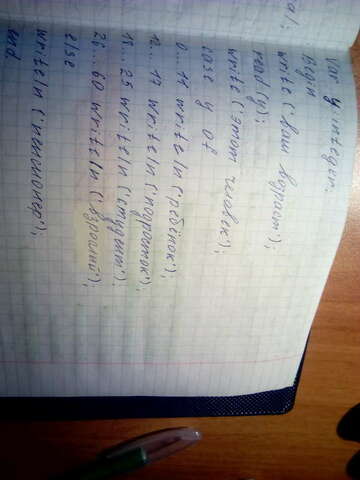 Var y integer;
Begin
write ('Ваш возраст');
read (y);
write ('этот человек');
case y of
0...11 writeln ('ребёнок');
12...17 writeln ('подросток');
18...25 writeln ('студент');
26...60 writeln ('взрослый');
else
writeln ('пенсионер');
end